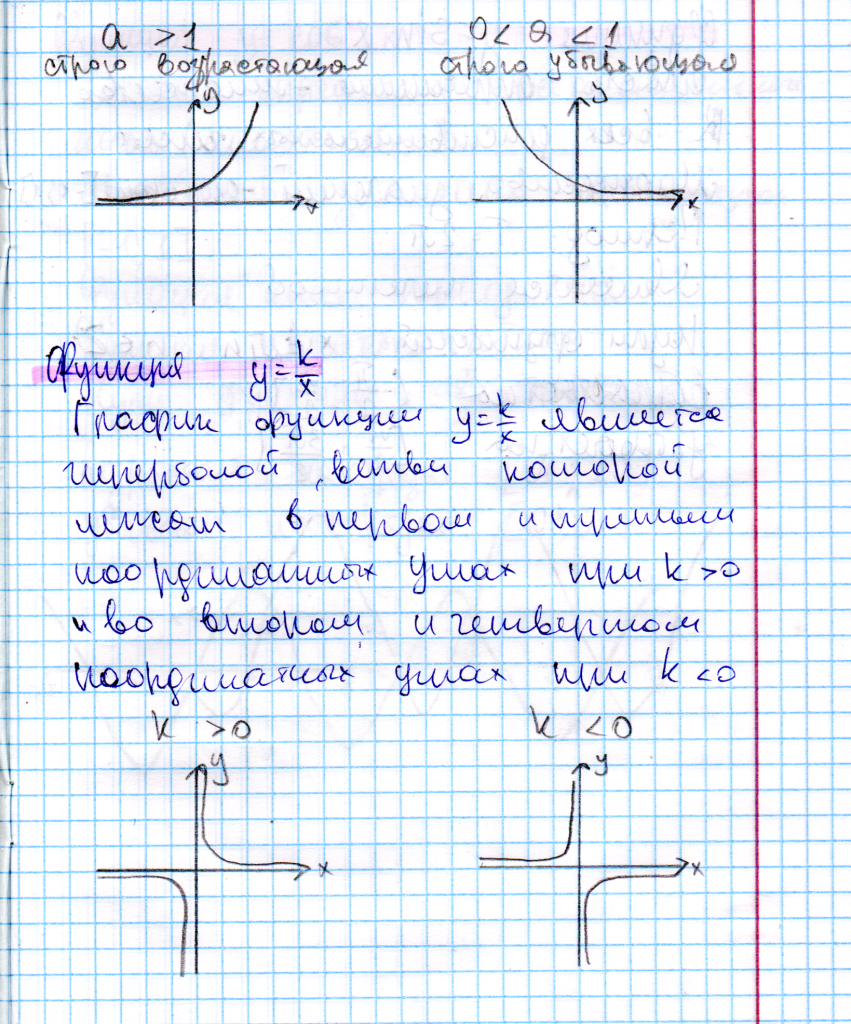 a > 1 0 < a < 1
строго возрастающая строго убывающая
y y
x x
Функция y = k/x
График функции y = k/x является
гиперболой, ветви которой
лежат в первом и третьем
координатных углах при k > 0
и во втором и четвертом
координатных углах при k < 0
k > 0 k < 0
y y
x x